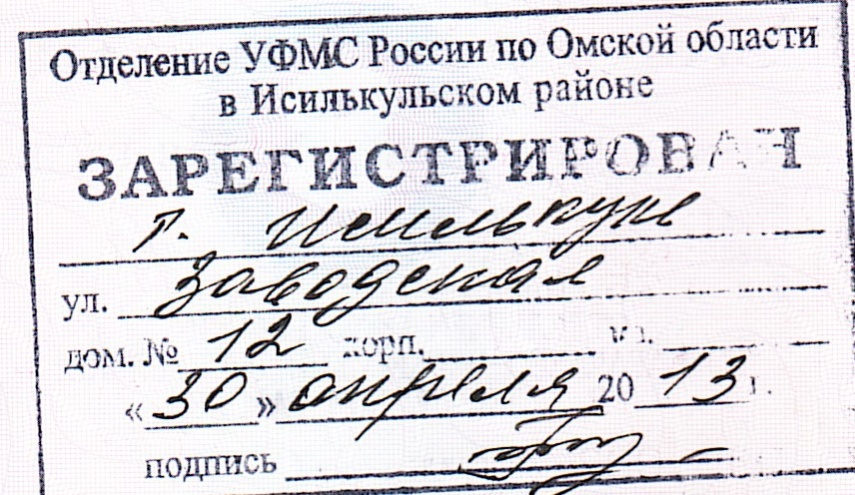 Отделение УФМС России по Омской области
в Исилькульском районе
ЗАРЕГИСТРИРОВАН
г. Исилькуль
ул. Заводская
дом. № 12 корп. кв.
«30» апреля 2013 г.
подпись